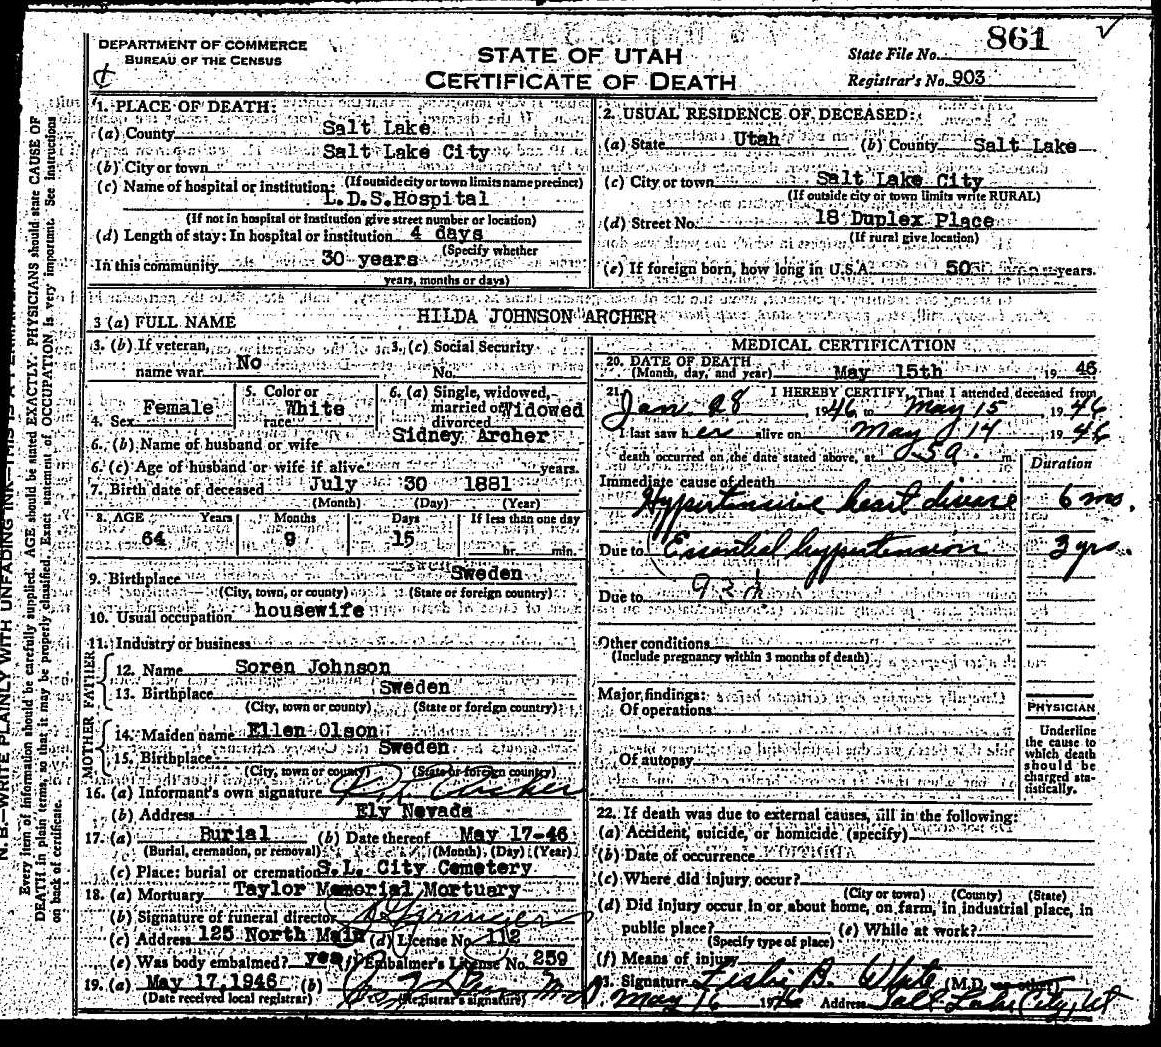 DEPARTMENT OF COMMERCE
BUREAU OF THE CENSUS
STATE OF UTAH
CERTIFICATE OF DEATH
State File No. 861
Registrar's No. 903
1. PLACE OF DEATH:
(a) County Salt Lake
(b) City or town Salt Lake City
(If outside city or town limits name precinct)
(c) Name of hospital or institution:
L.D.S.Hospital
(If not in hospital or institution give street number or location)
(d) Length of stay: In hospital or institution 4 days
(Specify whether
In this community 30 years
years, months or days)
2. USUAL RESIDENCE OF DECEASED:
(a) State Utah (b) County Salt Lake
(c) City or town Salt Lake City
(If outside city or town limits write RURAL)
(d) Street No. 18 Duplex Place
(If rural give location)
(e) If foreign born, how long in U.S.A. 50 years.
3 (a) FULL NAME HILDA JOHNSON ARCHER
3. (b) If veteran, name war No
3. (c) Social Security No.
4. Sex Female
5. Color or race White
6. (a) Single, widowed, married or divorced Widowed
6. (b) Name of husband or wife Sidney Archer
6. (c) Age of husband or wife if alive years.
7. Birth date of deceased July 30 1881
(Month) (Day) (Year)
8. AGE Years Months Days If less than one day
64 9 15 hr. min.
9. Birthplace Sweden
(City, town, or county) (State or foreign country)
10. Usual occupation housewife
11. Industry or business
FATHER
12. Name Soren Johnson
13. Birthplace Sweden
(City, town or county) (State or foreign country)
MOTHER
14. Maiden name Ellen Olson
15. Birthplace Sweden
(City, town or county) (State or foreign country)
16. (a) Informant's own signature Archer
(b) Address Ely Nevada
17. (a) Burial (b) Date thereof May 17-46
(Burial, cremation, or removal) (Month) (Day) (Year)
(c) Place: burial or cremation S.L. City Cemetery
18. (a) Mortuary Taylor Memorial Mortuary
(b) Signature of funeral director
(c) Address 125 North Main (d) License No. 112
(e) Was body embalmed? yes (f) Embalmer's License No. 259
19. (a) May 17, 1946 (b)
(Date received local registrar) (Registrar's signature)
MEDICAL CERTIFICATION
20. DATE OF DEATH
(Month, day, and year) May 15th 1946
21. I HEREBY CERTIFY, That I attended deceased from
Jan. 28 1946 to May 15 1946
I last saw her alive on May 14 1946
death occurred on the date stated above, at m.
Duration
Immediate cause of death
Hypertensive heart disease 6 mo.
Due to Essential hypertension 3 yrs.
Due to
Other conditions
(Include pregnancy within 3 months of death)
Major findings:
Of operations
Of autopsy
PHYSICIAN
Underline
the cause to
which death
should be
charged sta-
tistically.
22. If death was due to external causes, fill in the following:
(a) Accident, suicide, or homicide (specify)
(b) Date of occurrence
(c) Where did injury occur?
(City or town) (County) (State)
(d) Did injury occur in or about home, on farm, in industrial place, in
public place? (e) While at work?
(Specify type of place)
(f) Means of injury
23. Signature Leslie B. White (M.D. or other)
May 16 1946 Address Salt Lake City, Ut
N. B.—WRITE PLAINLY WITH UNFADING INK—THIS IS A
Every item of information should be carefully supplied. AGE should be stated EXACTLY. PHYSICIANS should state CAUSE OF
DEATH in plain terms, so that it may be properly classified. Exact statement of OCCUPATION is very important. See instructions
on back of certificate.